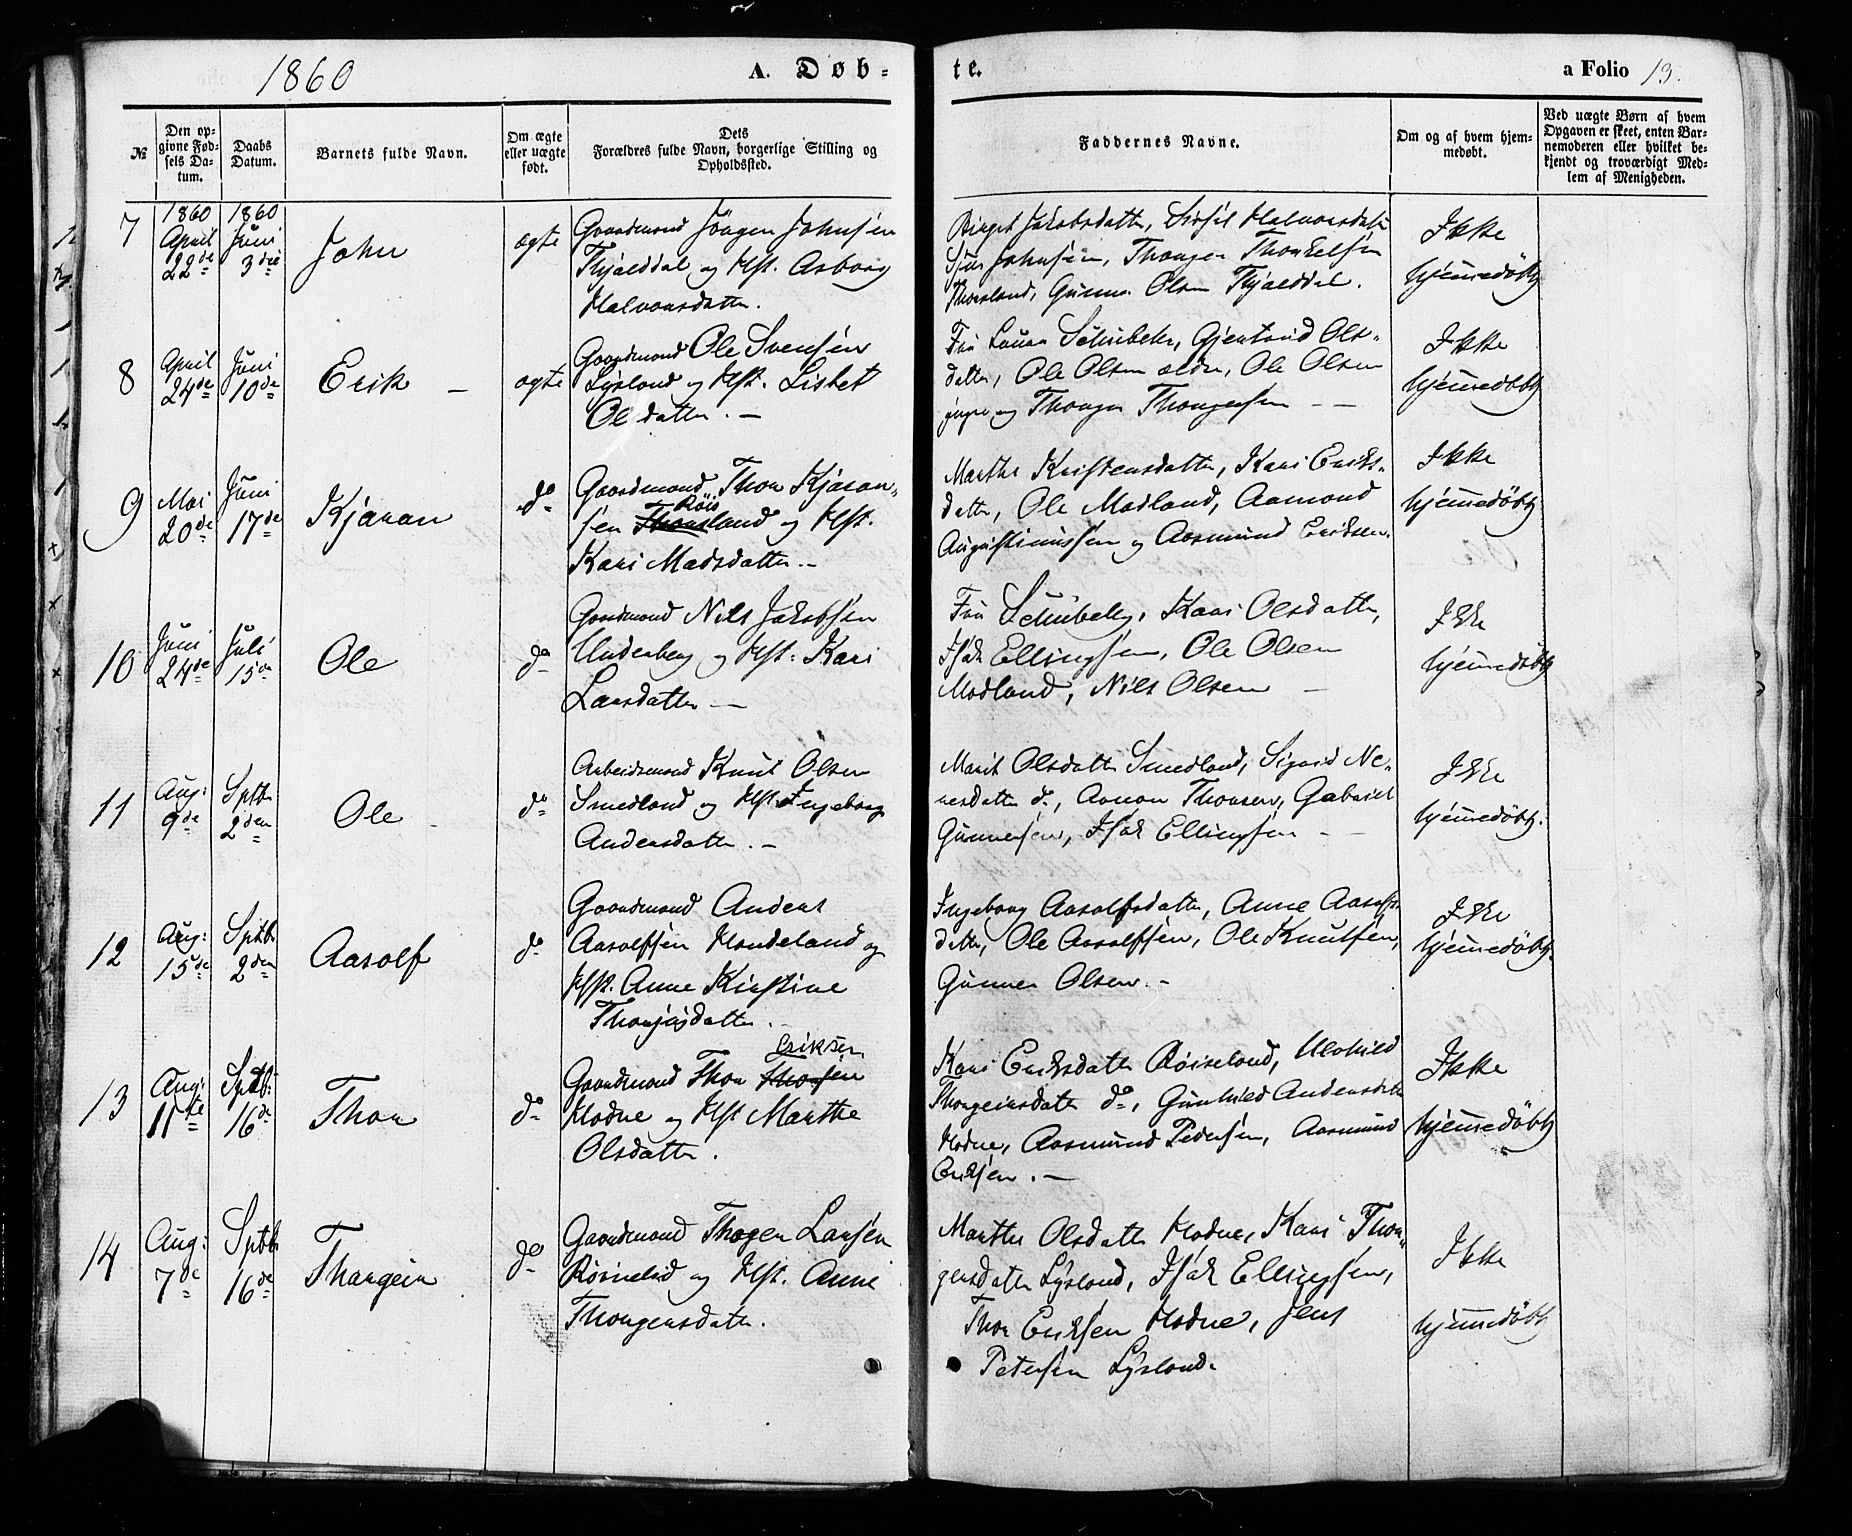 1860
A. Døb-
te.
a Folio 13.
№
Den op-
givne Fød-
sels Da-
tum.
Daabs
Datum.
Barnets fulde Navn.
Om ægte
eller uægte
født.
Dets
Forældres fulde Navn, borgerlige Stilling og
Opholdssted.
Faddernes Navne.
Om og af hvem hjem-
medøbt.
Ved uægte Børn af hvem
Opgaven er skeet, enten Bar-
nemoderen eller hvilket be-
kjendt og troværdigt Med-
lem af Menigheden.
7
1860
April
22de
1860
Juni
3die
John
ægte
Gaardmand Jörgen Johnsen
og Hst. Asborg
Halvorsdatter.
Birget Jakobsdatter, Sirsil Halvorsdatter
Johnsen, Thorger Thorkelsen
Gunnar Olsen
Ikke
hjemmedöbt
8
April
24de
Juni
10de
Erik –
ægte
Gaardmand Ole Svensen
Lysland og Hst. Lisbet
Olsdatter. –
Fru Laura Schubeler, Gjertrud Ols-
datter, Ole Olsen ældre, Ole Olsen
yngre og Thorger Thorgersen – –
Ikke
hjemmedöbt
9
Mai
20de
Juni
17de
Kjaran
do
Gaardmand Thor Kjaran-
Röis
sen Thorsland og Hst.
Kari Madsdatter. –
Marthe Kristensdatter, Kari Eriks-
datter, Ole Modland, Aamond
Augustinussen og Aasmund Eriksen.
Ikke
hjemmedöbt
10
Juni
24de
Juli
15de
Ole
do
Gaardmand Nils Jakobsen
Underberg og Hst. Kari
Larsdatter –
Fru Schubeler, Kari Olsdatter,
Isak Ellingsen, Ole Olsen
Modland, Nils Olsen –
Ikke
hjemmedöbt
11
Aug:
9de
Sptb.
2den
Ole
do
Arbeidsmand Knut Olsen
Smedland og Hst. Ingeborg
Andersdatter. –
Marit Olsdatter Smedland, Sigrid Ne-
resdatter do, Aanon Thorsen, Gabriel
Gunnersen, Isak Ellingsen –
Ikke
hjemmedöbt.
12
Aug:
15de
Sptb.
2den
Aasolf
do
Gaardmand Anders
Aasolfsen Handeland og
Hst. Anne Kirstine
Thorjusdatter. –
Ingeborg Aasolfsdatter, Anne Aasolfs-
datter, Ole Aasolfsen, Ole Knutsen,
Gunner Olsen. –
Ikke
hjemmedöbt.
13
Aug:
11te
Sptb:
16de
Thor
do
Eriksen
Gaardmand Thor Thorsen
Hodne og Hst Marthe
Olsdatter.
Kari Eriksdatter Röiseland,
Thorgeirsdatter do, Gunhild Andersdatter
Hodne, Aasmund Pedersen, Aasmund
Eriksen. –
Ikke
hjemmedöbt
14
Aug:
7de
Sptb:
16de
Thorgeir
do
Gaardmand Thoger Larsen
og Hst. Anne
Thorgersdatter.
Marthe Olsdatter Hodne, Kari Thor-
gersdatter Lysland, Isak Ellingsen,
Thor Eriksen Hodne, Jens
Petersen Lysland.
Ikke
hjemmedöbt